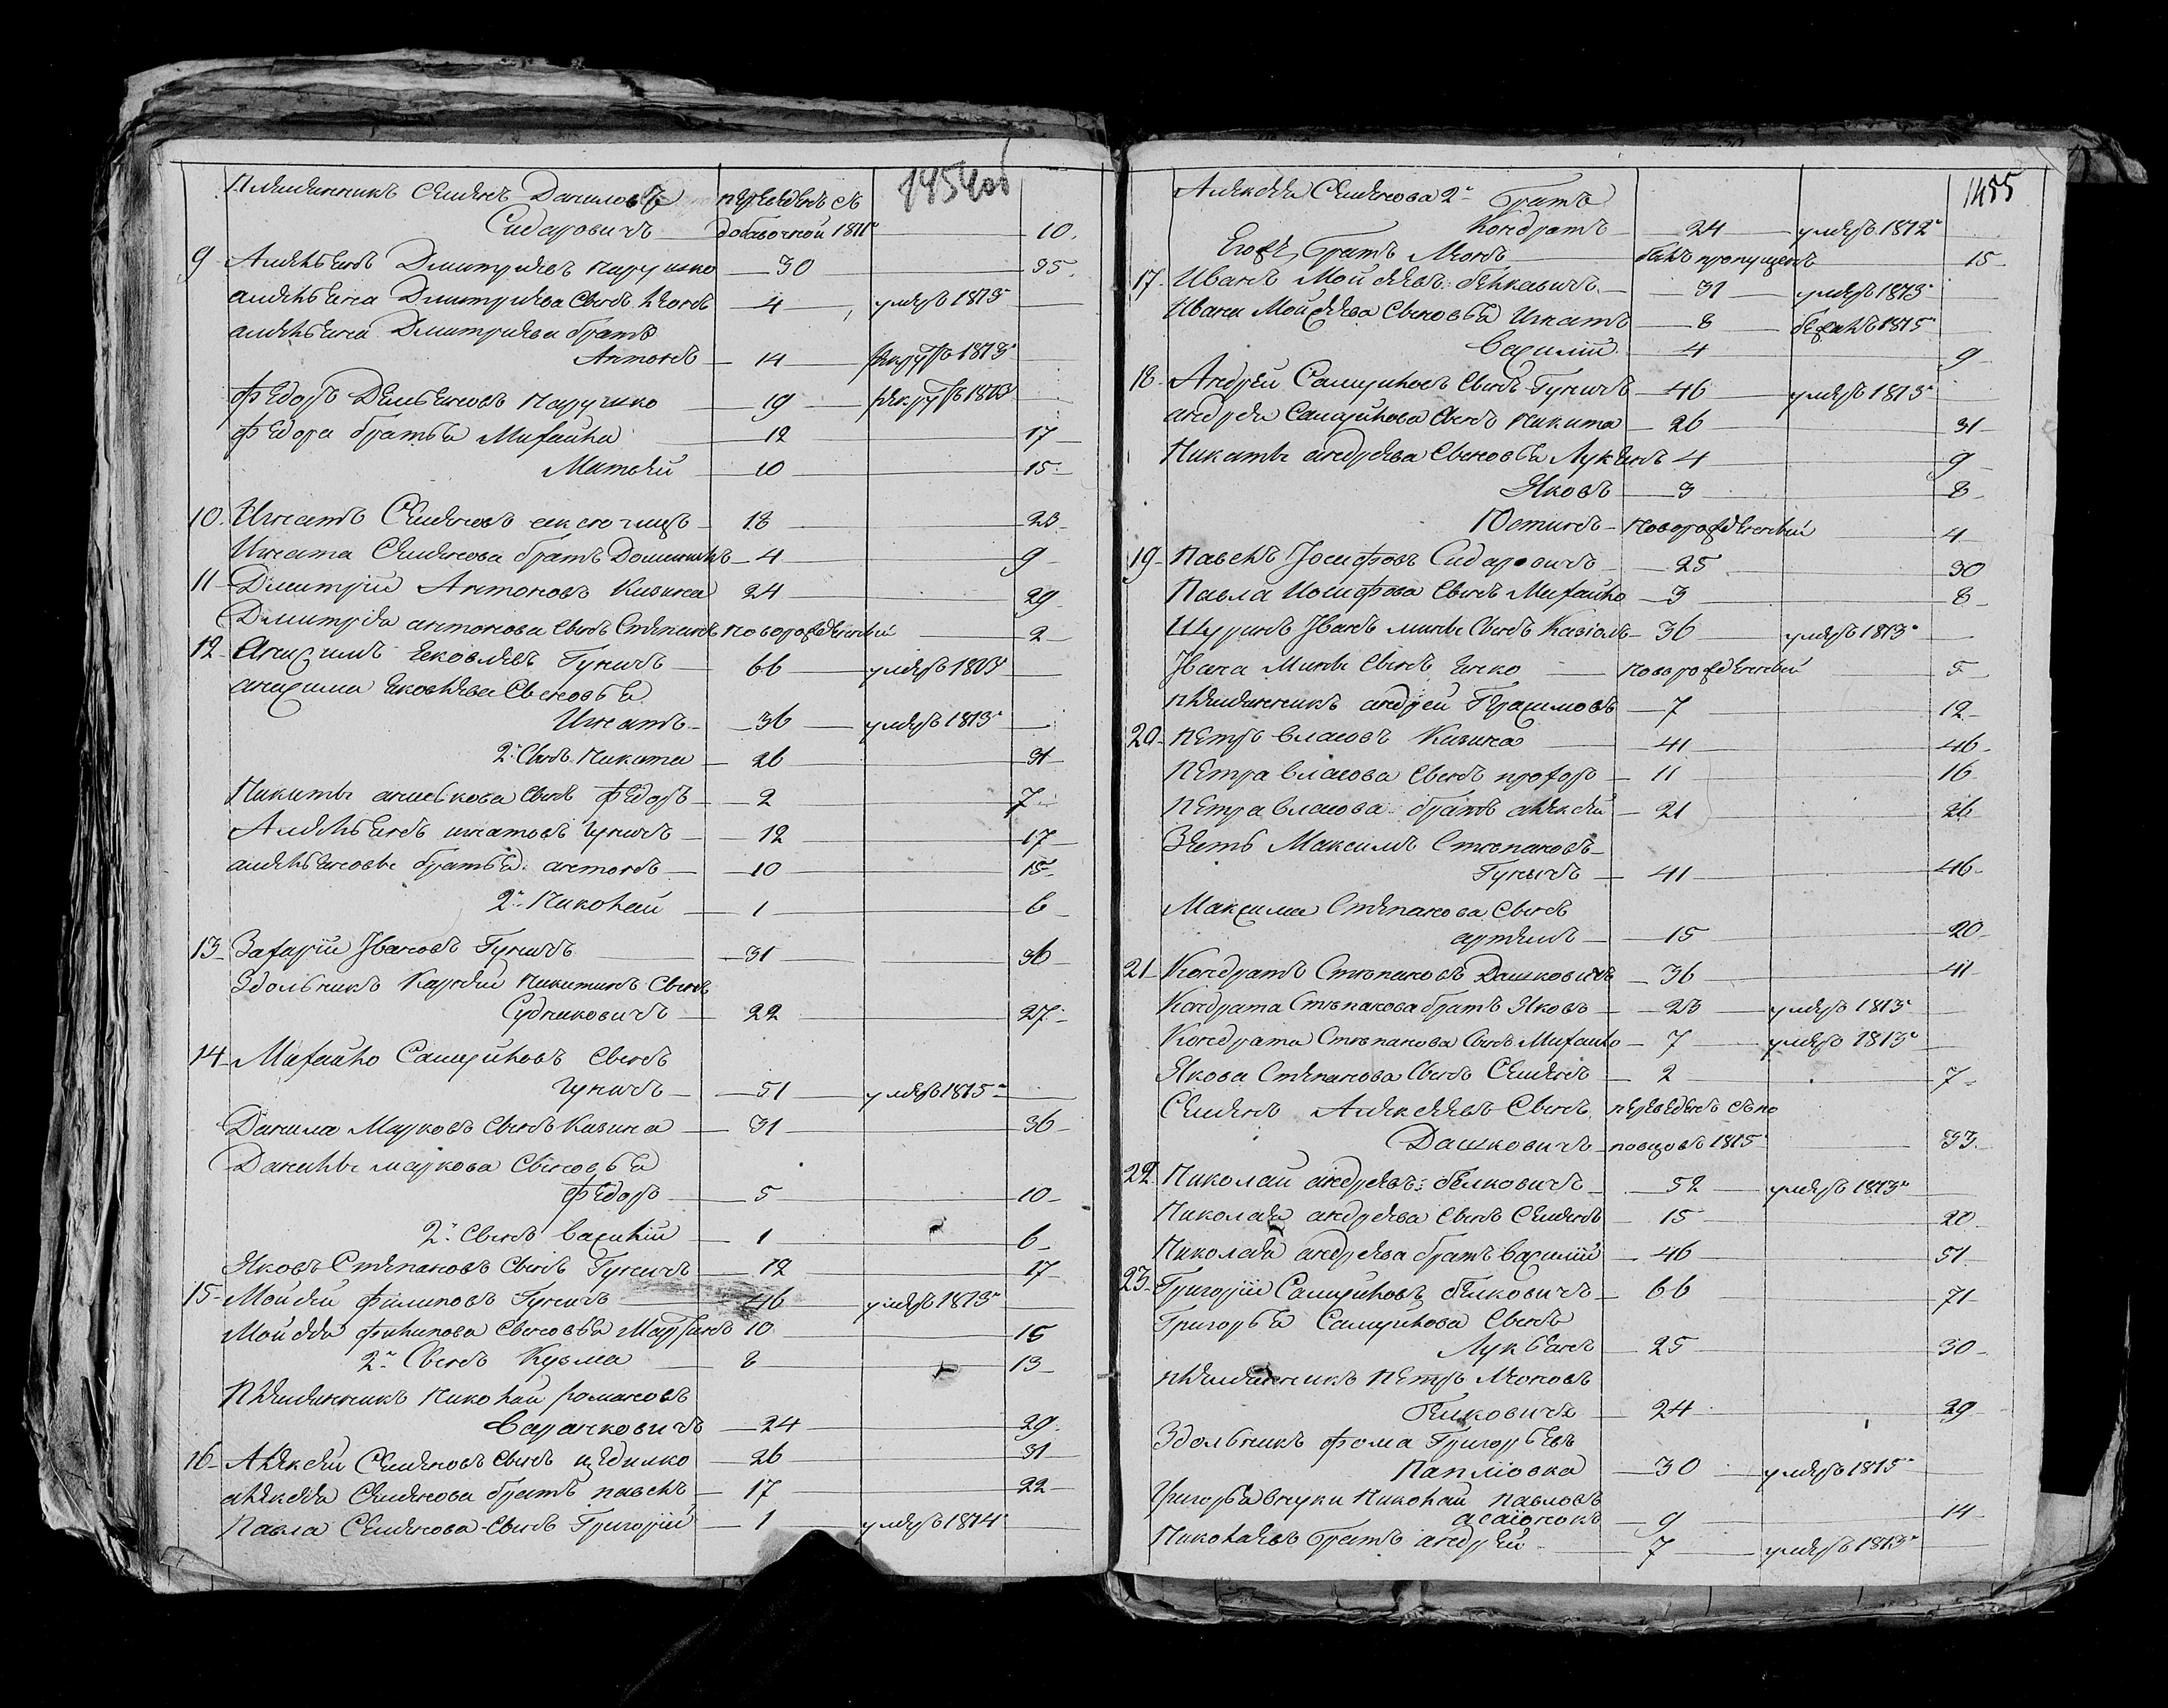 1454об
Племянникъ Семенъ Даниловъ переведенъ съ
Сидаровичъ добавочной 1811го 10
9 Амельянъ Дмитриевъ Парушко 30 35
амельяна Дмитриева сынъ Леонъ 4 умеръ 1813го
амельяна Дмитриева братъ
Антонъ 14 рекрутъ 1813го
Федоръ Демьяновъ Парушко 19 рекрутъ 1813
Федора братья Михайла 12 17
Матвей 10 15
10 Игнатъ Семеновъ 18 23
Игната Семенова братъ Доминикъ 4 9
11 Дмитрий Антоновъ Кизина 24 29
Дмитрия антонова сынъ Степанъ новорожденный 2
12 Анисимъ Яковлевъ Гуничъ 66 умеръ 1813
анисима яковлева сыновья
Игнатъ 36 умеръ 1813го
2й сынъ Никита 26 31
Никиты анисимова сынъ Федоръ 2 7
Амельянъ игнатовъ гуничъ 12 17
амельяновы братья антонъ 10 15
2й Николай 1 6
13 Захарий Ивановъ Гуничъ 31 36
Здольникъ Карней Никитинъ сынъ
Судниковичъ 22 27
14 Михайло Самуиловъ сынъ
гуничъ 51 умеръ 1815го
Данила Марковъ сынъ Кизина 31 36
Данилы маркова сыновья
Федоръ 5 10
2й сынъ Василий 1 6
Яковъ Степановъ сынъ Гуничъ 12 17
15 Мойсей Филиповъ Гуничъ 46 умеръ 1813го
Мойсея филипова сыновья Мартинъ 10 15
2й сынъ Кузма 8 13
Племянникъ Николай Романовъ
Саранковичъ 24 29
16 Алексей Семеновъ сынъ 26 31
алексея Семенова братъ павелъ 17 22
Павла Семенова сынъ Григорий 1 умеръ 1814го
1455
Алексея Семенова 2й братъ
Кондратъ 24 умеръ 1812го
Егожъ братъ Леонъ былъ пропущенъ 15
17 Иванъ Мойсеевъ бялкавичъ 31 умеръ 1813го
Ивана Мойсеева сыновья Игнатъ 8 бежалъ 1815го
Василий 4 9
18 Андрей Самуиловъ сынъ Гуничъ 46 умеръ 1813го
андрея Самуилова сынъ Никита 26 31
Никиты андреева сыновья Лукьянъ 4 9
Яковъ 3 8
Юстинъ новорожденный 4
19 Павелъ Иосифовъ Сидаровичъ 25 30
Павла Иосифова сынъ Михайло 3 8
Шуринъ Иванъ мины сынъ Казіолъ 36 умеръ 1813го
Ивана Мины сынъ янко новорожденный 5
племянникъ андрей Герасимовъ 7 12
20 Петръ власовъ Кизина 41 46
Петра власова сынъ прохоръ 11 16
Петра власова братъ алексей 21 26
Зять Максимъ Степановъ
Гуничъ 41 46
Максима Степанова сынъ
артемъ 15 20
21 Кондратъ Степановъ Дашковичъ 36 41
Кондрата Степанова братъ Яковъ 23 умеръ 1813го
Кондрата Степанова сынъ Михайло 7 умеръ 1813го
Якова Степанова сынъ Семенъ 2 7
Семенъ Алексеевъ сынъ переведенъ съ
Дашковичъ 1815го 33
22 Николай андреевъ бялковичъ 52 умеръ 1813го
Николая андреева сынъ Семенъ 15 20
Николая андреева братъ Василий 46 51
23 Григорий Самуиловъ бялковичъ 66 71
Григорья Самуилова сынъ
Лукьянъ 25 30
племянникъ Петръ Леоновъ
Бялковичъ 24 29
Здольникъ фома Григорьевъ
30 умеръ 1815го
Григорья внуки Николай павловъ
9 14
Николаевъ братъ андрей 7 умеръ 1813го